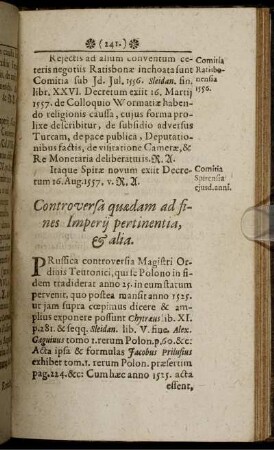 (241.)
Rejectis ad alium conventum ce-
teris negotiis Ratisbonæ inchoata sunt
Comitia sub Jd. Jul. 1556. Sleidan. fin.
libr. XXVI. Decretum exiit 16. Martij
1557. de Colloquio Wormatiæ haben-
do religionis caussa, cujus forma pro-
lixe describitur, de subsidio adversus
Turcam, de pace publica, Deputatio-
nibus factis, de visitatione Cameræ, &
Re Monetaria deliberatum is. R. A.
Itaque Spiræ novum exiit Decre-
tum 16. Aug. 1557. v. R. A.
Comitia
Ratisbo-
nensia
1556.
Comitia
Spirensia
ejusd. anni.
Controversa quædam ad fi-
nes Imperij pertinentia,
& alia.
PRussica controversia Magistri Or-
dinis Teutonici, qui se Polono in fi-
dem tradiderat anno 25. in eum statum
pervenit, quo postea mansit anno 1525.
ut jam supra cœpimus dicere & am-
plius exponere possunt Chytræus lib. XI.
p. 281. & seqq. Sleidan. lib. V. sive Alex.
Gaguinus tomo 1. rerum Polon. p. 60. &c:
Acta ipsa & formulas Jacobus Prilusius
exhibet tom. 1. rerum Polon. præsertim
pag. 224. &c: Cum hæc anno 1525. acta
essent,